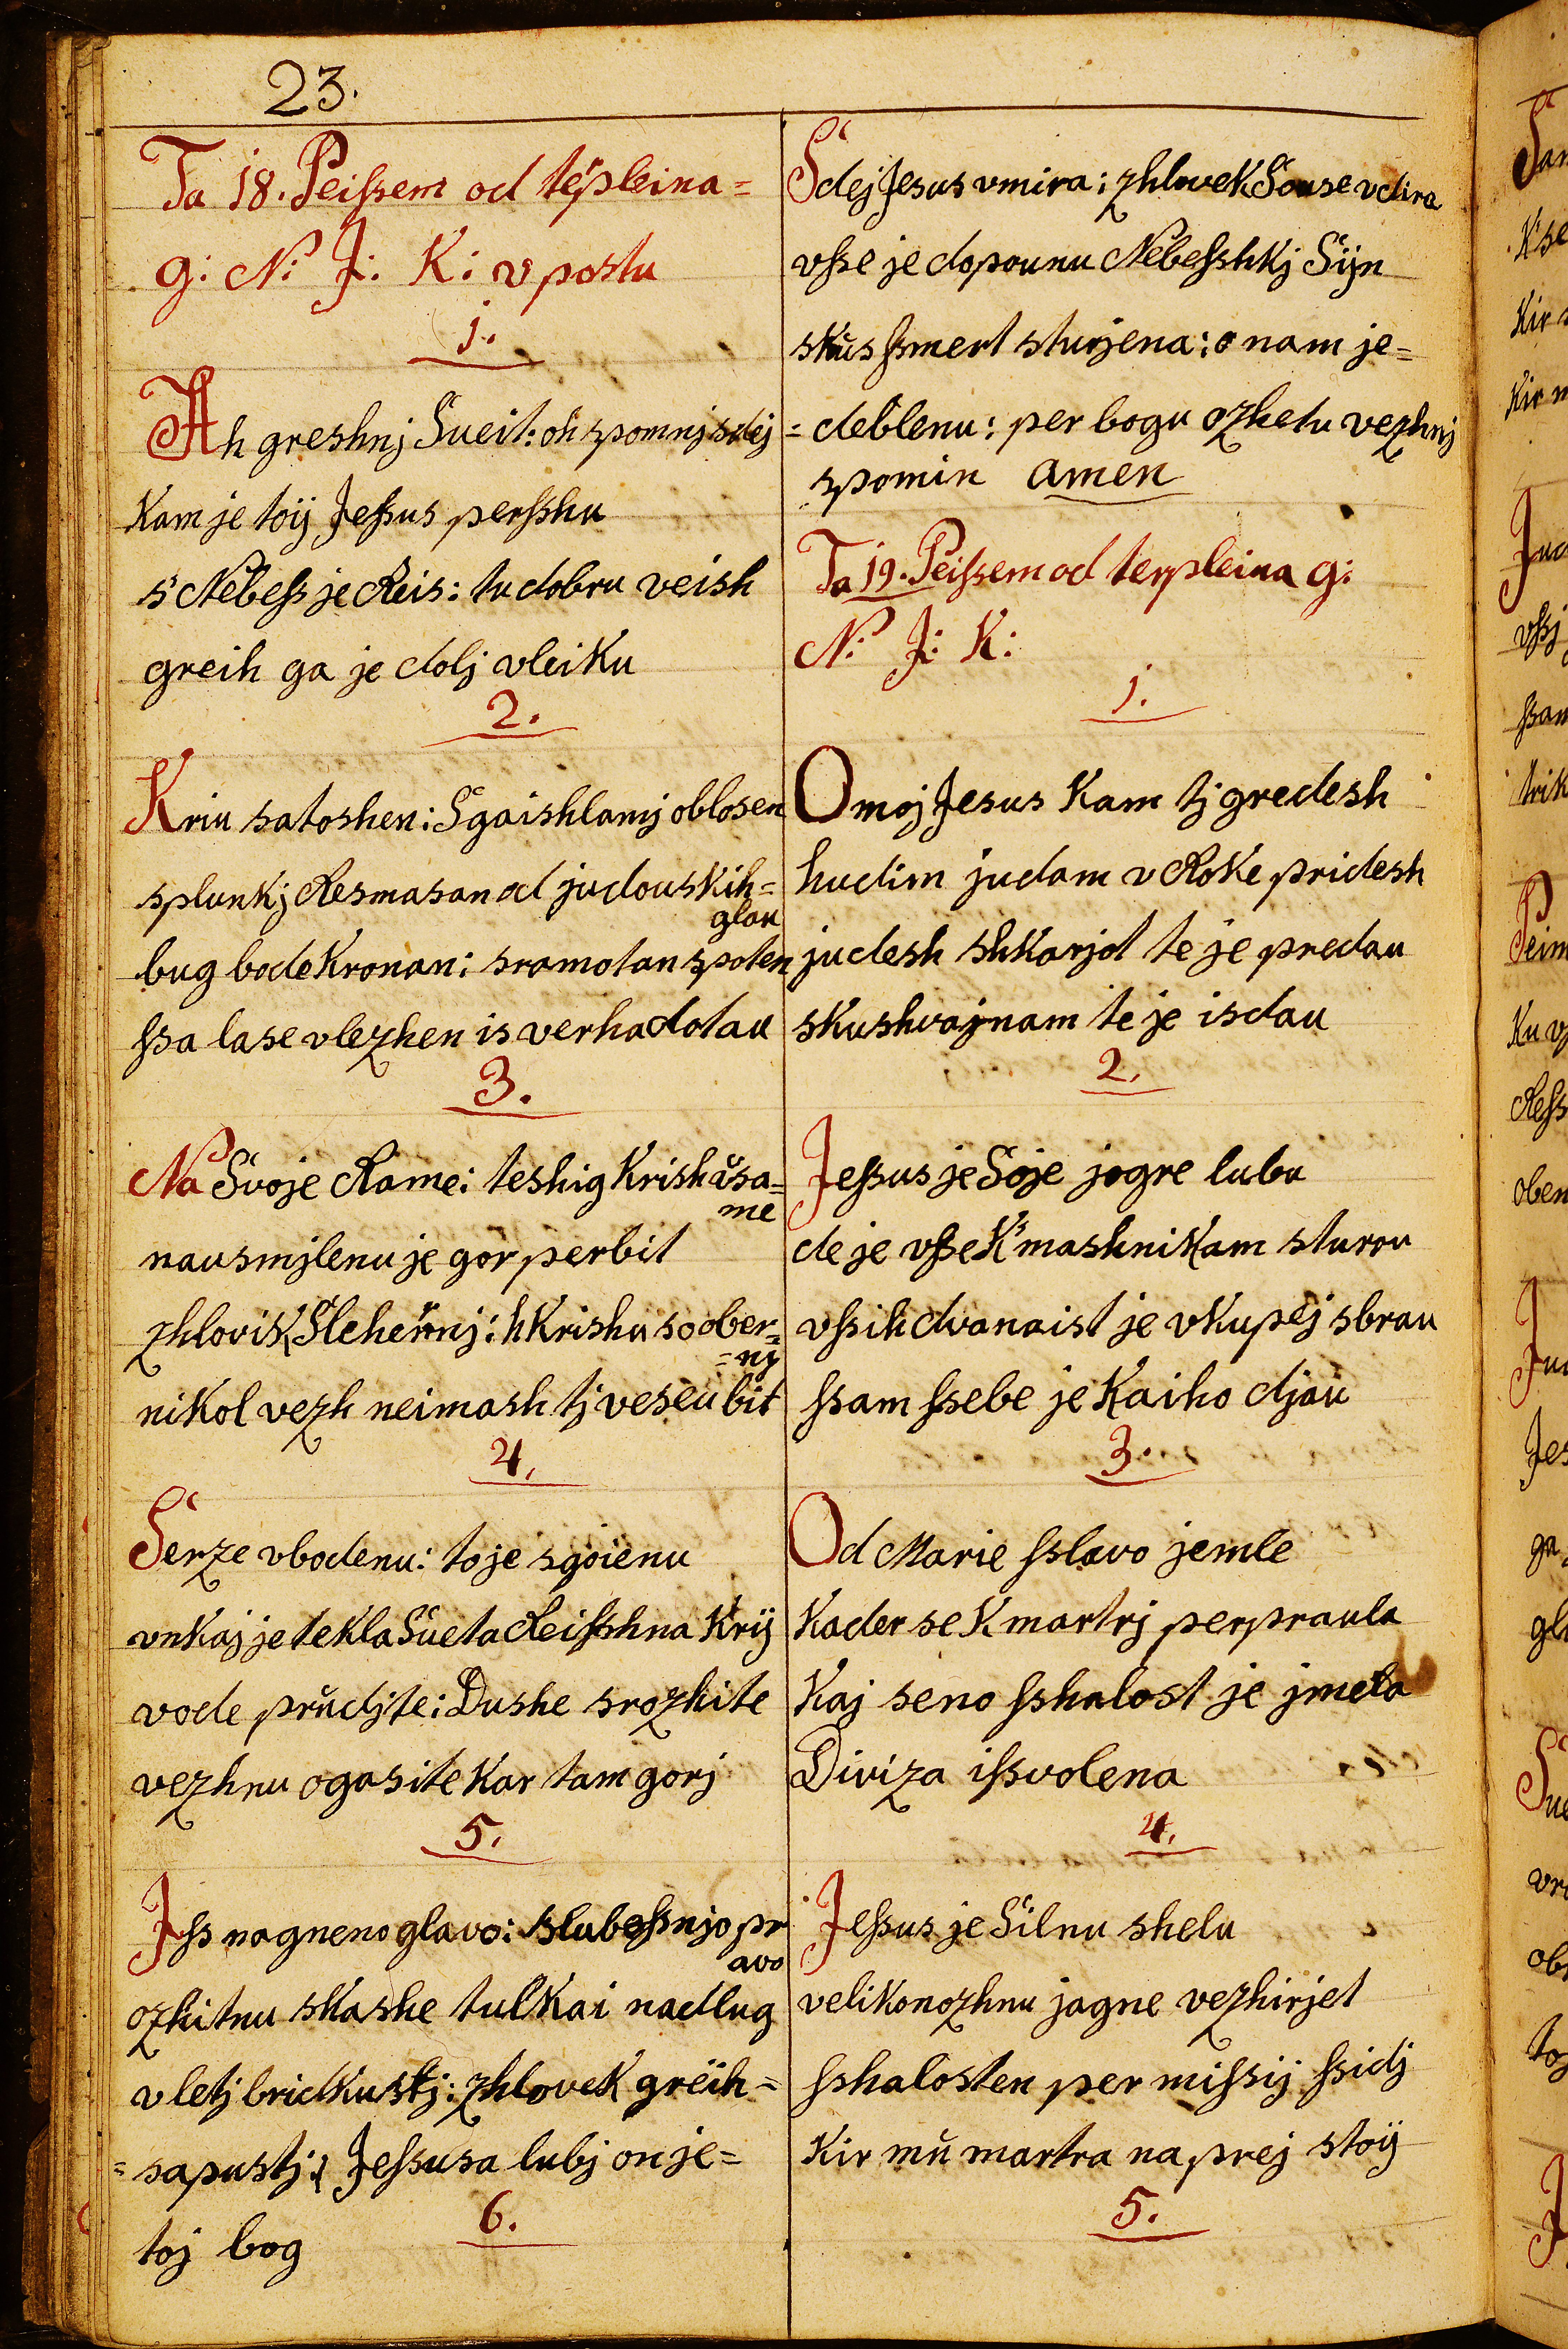 23.
Ta 18. Peissem od terpleina=
g: N: J: K: v postu
1.
Ah greshnj Sueit: oh spomnj sdej
Kam je toij Jessus persshu
s Nebess je Reis: tu dobru veish
greih ga je dolj vleiku
2.
Kriu satoshen: Sgaishlamj oblosen
splunkj Resmasan od judouskih=
glau
bug bode Kronan: sramotan spoten
ssa lase vlezhen is verha do tau
3.
Na Svoje Rame: teshig Krish usa=
me
nausmjlenu je gor perbit
zhlovik Slehernj: h Krishu so ober=
=nj
nikol vezh neimash tj veseu bit
4.
Serze vbodenu: to je sgoienu
vnkaj je tekla Sueta Reisshna Krij
vode prudjte: Dushe srozhite
vezhnu ogasite kar tam gorj
5.
Jss nagneno glavo: slubessnjo pr
avo
ozhitnu skashe tulkai nadlug
v letj bridkustj: zhlovek greih=
=sapustj: Jessusa lubj on je=
toj bog
6.
Sdej Jesus vmira: zhlovek Souse vdira
vsse je dopounu Nebesshkj Sijn
skus ssmert sturjena: o nam je=
=deblenu: per bogu ozhetu vezhnj
spomin amen
Ta 19. Peissem od terpleina g:
N: J: K:
1.
O moj Jesus Kam tj gredesh
hudim judam v Roke pridesh
judesh shkarjot te je predau
skushvaj nam te je isdau
2.
Jessus je Soje jogre lubu
de je vsse K mashnikam sturou
vssih dvanaist je vkupej sbrau
ssam ssebe je Kaiho djau
3.
Od Marie sslavo jemle
Kader se K martrj perpraula
Kaj seno sshalost je jmela
Diviza issvolena
4.
Jessus je Silnu shelu
velikonozhnu jagne vezhirjet
sshalosten per missij ssidj
Kir mu martra naprej stoij
5.